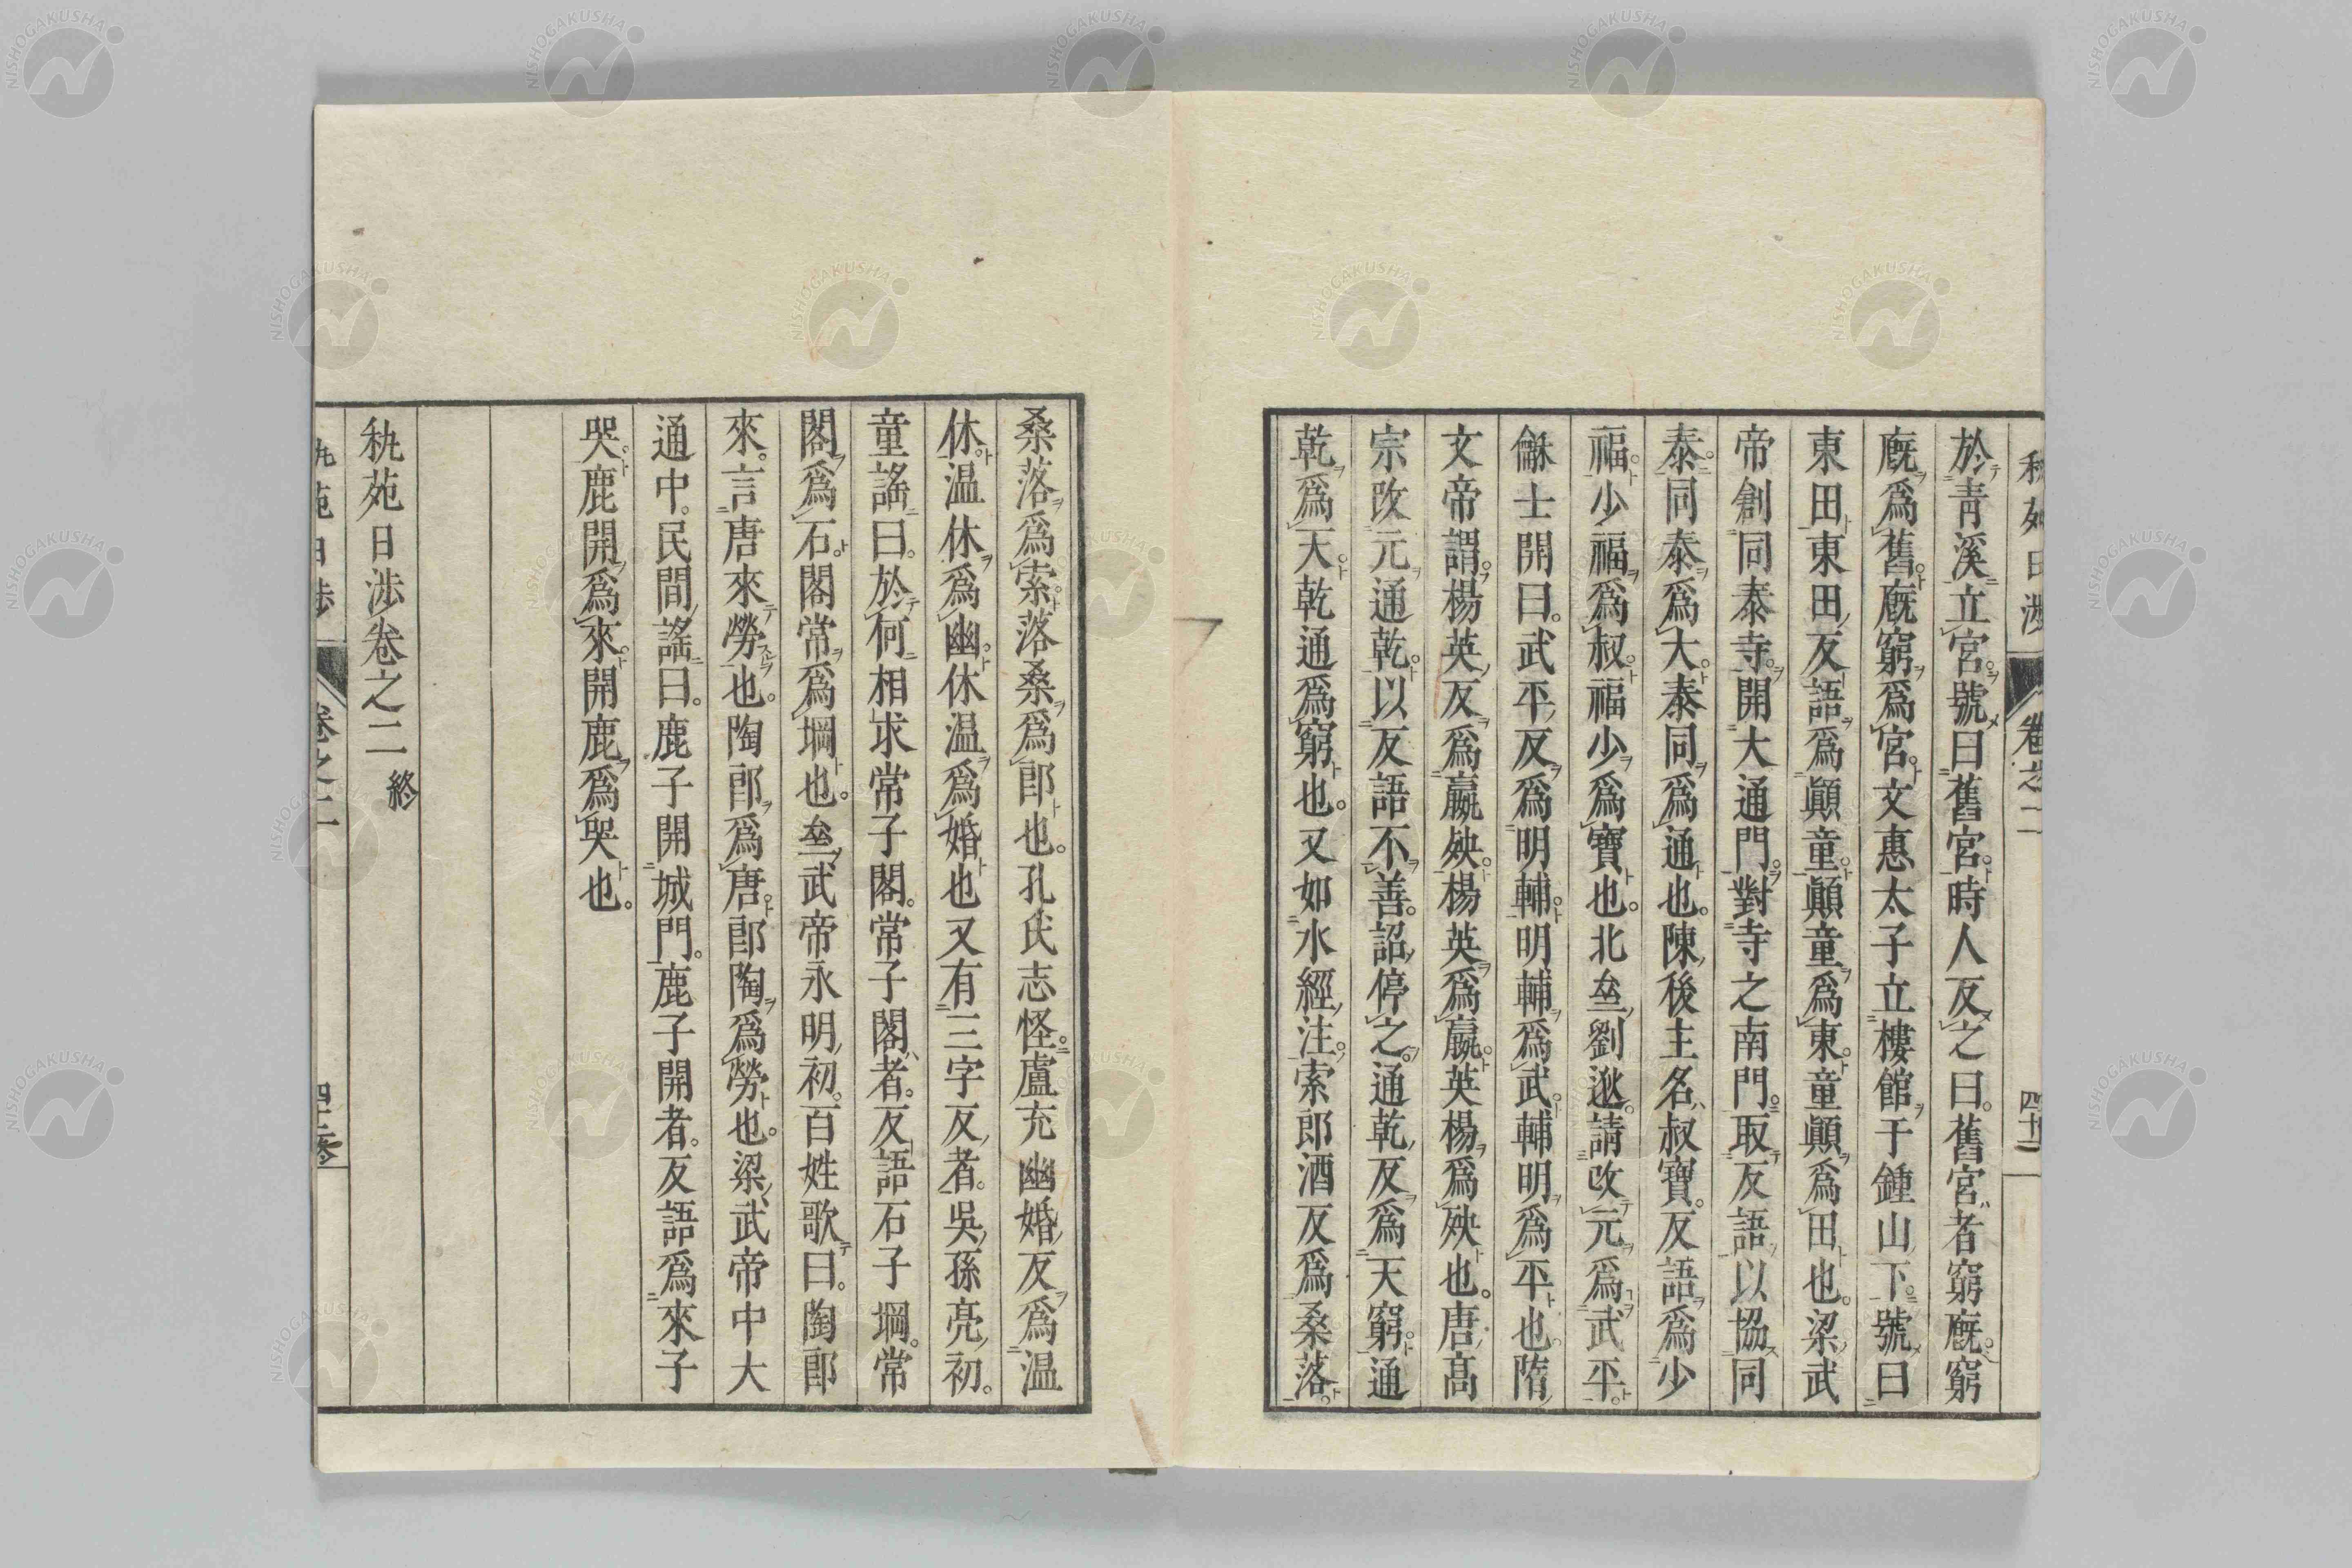 於青溪立宮。號曰舊宮。時人反之曰。舊宮者窮廐。窮
廐爲舊。廐窮爲宮。文惠太子立樓館于鍾山下。號曰
東田。東田反語爲顚童。顚童爲東。童顚爲田也。梁武
帝創同泰寺。開大通門。對寺之南門。取反語以協同
泰。同泰爲大。泰同爲通也。陳後主名叔寶。反語爲少
福。少福爲叔。福少爲寶也。北亝劉逖。請改元爲武平。
龢士開曰。武平反爲明輔。明輔爲武。輔明爲平也。隋
文帝謂。楊英反爲嬴殃。楊英爲嬴。英楊爲殃也。唐高
宗改元通乾。以反語不善。詔停之。通乾反爲天窮。通
乾爲天。乾通爲窮也。又如水經注。索郎酒反爲桑落。
桑落爲索。落桑爲郎也。孔氏志怪。盧充幽婚反爲温
休。温休爲幽。休温爲婚也。又有三字反者。吳孫亮初。
童謠曰。於何相求常子閣。常子閣者。反語石子堈。常
閣爲石。閣常爲堈也。亝武帝永明初。百姓歌曰。陶郎
來。言唐來勞也。陶郎爲唐。郎陶爲勞也。梁武帝中大
通中。民間謠曰。鹿子開城門。鹿子開者。反語爲來子
哭。鹿開爲來。開鹿爲哭也。
秇苑日涉卷之二 終
秇苑日涉 卷之二
NISHOGAKUSHA